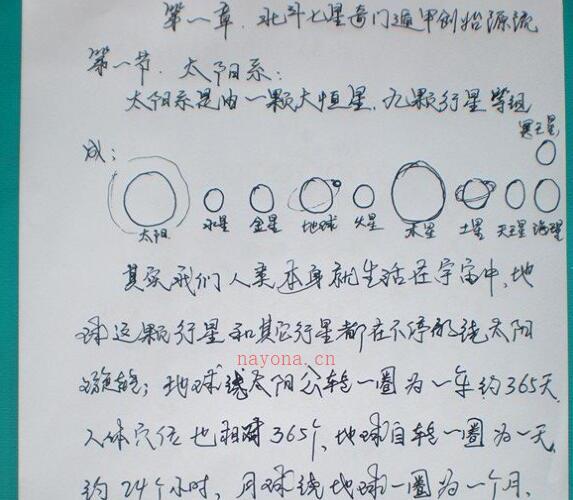 第一章.北斗七星奇门遁甲创始源流
第一节.太阳系:
太阳系是由一颗大恒星.九颗行星等组
冥王星
成:
太阳 水星 金星 地球 火星 木星 土星 天王星 海王星
其实我们人类本身就生活在宇宙中,地
球这颗行星和其它行星都在不停的绕太阳
nayona.cn
旋转;地球绕太阳公转一圈为一年约365天.
人体穴位也相对365个,地球自转一圈为一天.
约24个小时,月球绕地球一圈为一个月.